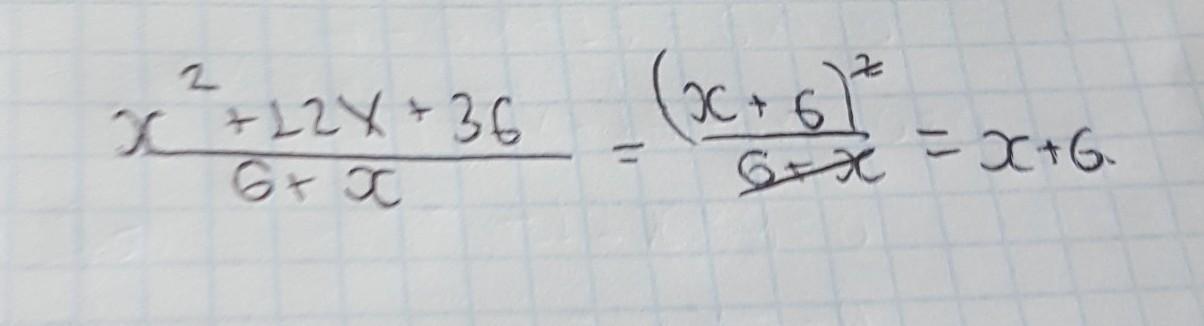 x² + 12x + 36 / 6 + x = (x + 6)² / 6 + x = x + 6.